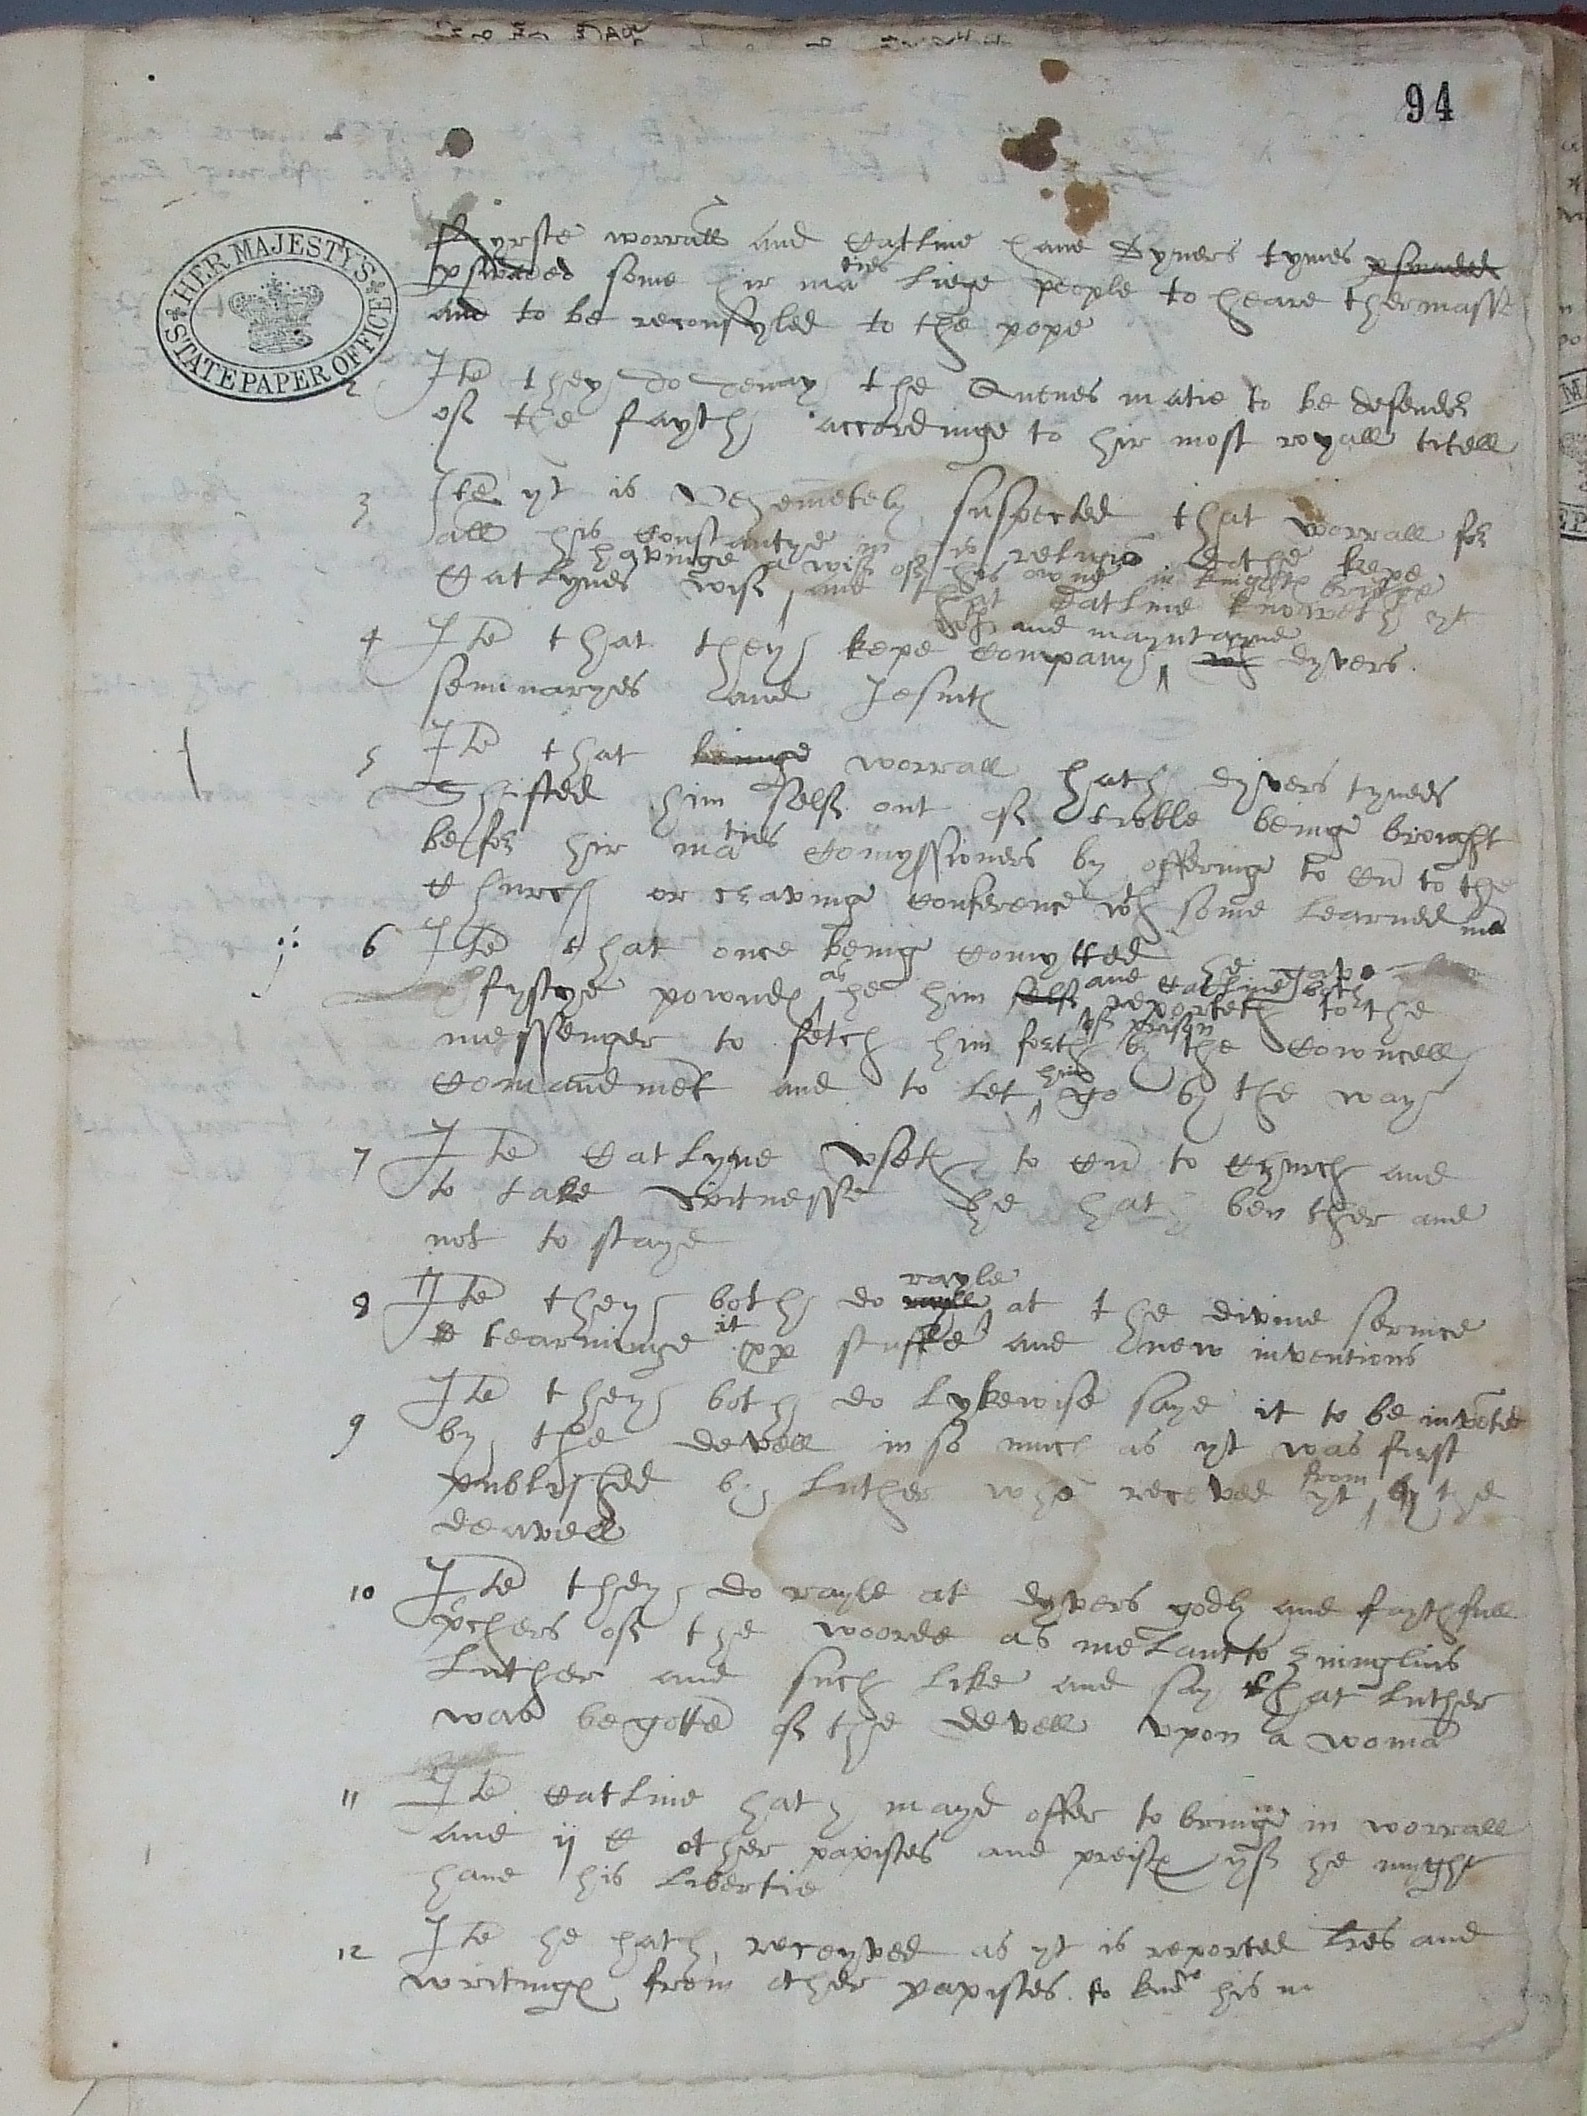 94
HER MAJESTY'S STATE PAPER OFFICE
Fyrste worrall and Catline have dyvers tymes pswaded
pswaded some hir maties liege people to heare ther masse
and to be reconsyled to the pope
2 Ite they do denay the Quenes matie to be defender
of the fayth accordinge to hir most royall titell
3 Ite yt is vehemetely suspected that worrall for
all his constantye in is religio dothe kepe
havinge a wif of his owne in knightes bridge
Catlynes wif and that Catline knoweth yt
wth and mayntayne
4 Ite that they kepe company wth dyvers
seminaryes and Jesuites
5 Ite that beinge worrall hath dyvers tymes
Shifted him self out of troble beinge brought
befor hir maties comyssioners by offeringe to cu to the
Church or cravinge conference wth some learned me
6 Ite that once being comytted he gave
as and Catline both
fystye powndes he him self reporteth to the
of prison
messenger to fetch him forth by the Councell
him
comandmet and to let go by the way
7 Ite Catlyne useth to cu to Church and
to take witnesse he hath ben ther and
not to staye
rayle
8 Ite they both do rayle at the divine service
it
tearminge xx stuffe and new inventions
9 Ite they both do lykewise saye it to be inveted
by the devell in so much as yt was first
from
published by luther who receved yt by the
deavell
10 Ite they do rayle at dyvers godly and faythfull
pchers of the woorde as melancto zuinglius
luther and such like and say that luther
was begotte of the devell upon a woma
11 Ite Catline hath mayd offer to bringe in worrall
and ij C other papistes and preistes yf he myght
have his libertie
12 Ite he hath receyved as yt is reported lres and
writinges from other papistes to his